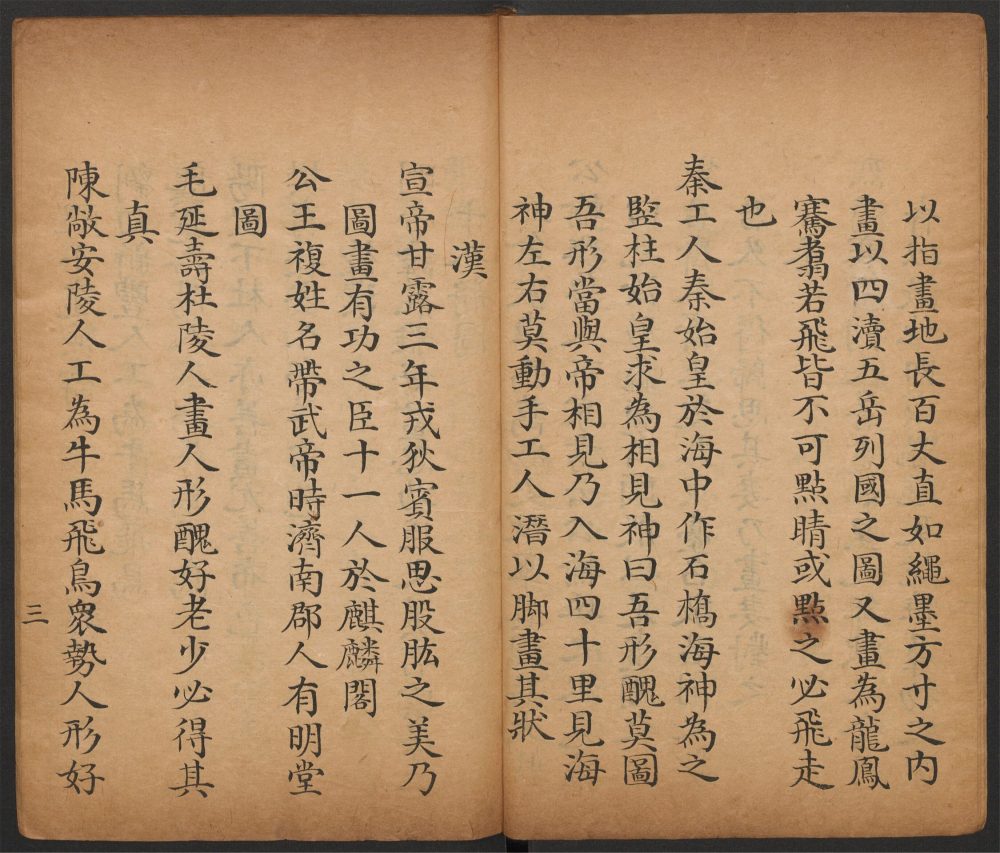 以指畫地長百丈直如繩墨方寸之內
畫以四瀆五岳列國之圖又畫為龍鳳
騫翥若飛皆不可點睛或點之必飛走
也
秦工人秦始皇於海中作石橋海神為之
監柱始皇求為相見神曰吾形醜莫圖
吾形當與帝相見乃入海四十里見海
神左右莫動手工人潛以脚畫其狀
漢
宣帝甘露三年戎狄賓服思股肱之美乃
圖畫有功之臣十一人於麒麟閣
公王複姓名帶武帝時濟南郡人有明堂
圖
毛延壽杜陵人畫人形醜好老少必得其
真
陳敞安陵人工為牛馬飛鳥衆勢人形好
三